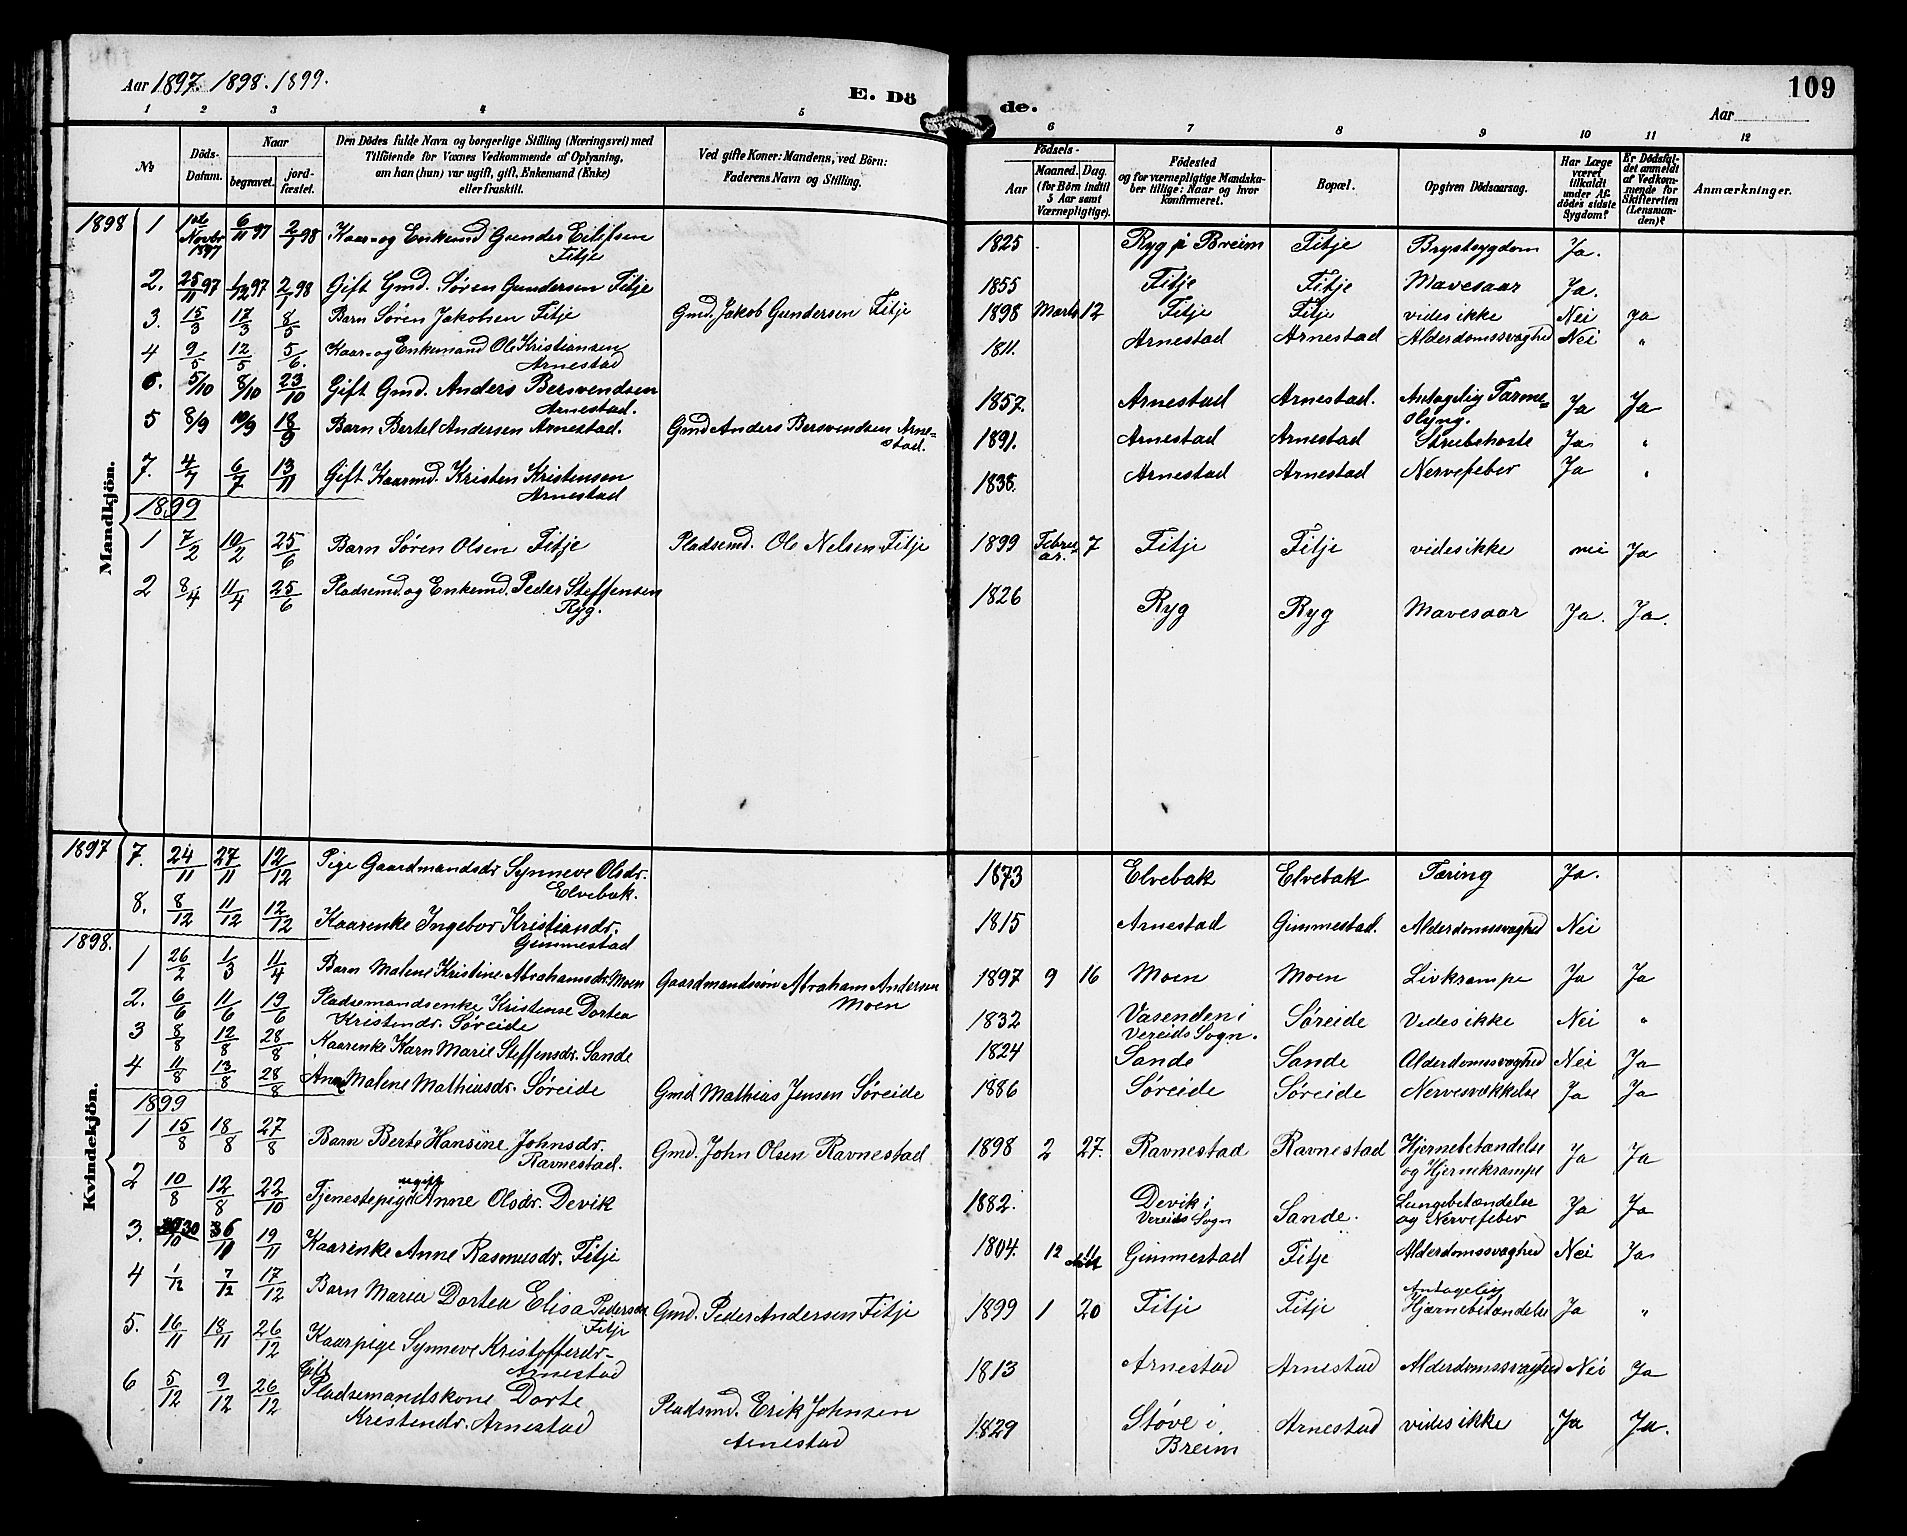 Aar 1897. 1898. 1899.
E. Dö de.
Aar
109
1 2 3 4 5 6 7 8 9 10 11 12
No.
Döds-Datum.
Naar begravet. jordfæstet.
Den Dödes fulde Navn og borgerlige Stilling (Næringsvei) med
Tilföiende for Voxnes Vedkommende af Oplysning,
om han (hun) var ugift, gift, Enkemand (Enke)
eller fraskilt.
Ved gifte Koner: Mandens, ved Börn:
Faderens Navn og Stilling.
Födsels-
Aar Maaned. Dag.
(for Börn indtil 5 Aar samt Værnepligtige).
Födested
og for værnepligtige Mandskaber tillige: Naar og hvor konfirmeret.
Bopæl.
Opgiven Dödsaarsag.
Har Læge været tilkaldt under Afdödes sidste Sygdom?
Er Dödsfaldet anmeldt af Vedkommende for Skifteretten (Lensmanden)?
Anmærkninger.
Mandkjön.
1898 1 1ste Novbr 1897 6/11 97 2/1 98 Kaar- og Enkemd Gunder Eilifsen Fitje 1825 Ryg i Breim Fitje Brystsygdom Ja.
2. 25/11 97 1/12 97 2/1 98 Gift Gmd. Søren Gundersen Fitje 1855 Fitje Fitje Mavesaar Ja.
3. 15/3 17/3 8/5 Barn Søren Jakobsen Fitje Gmd. Jakob Gundersen Fitje 1898 Marts 12 Fitje Fitje vides ikke Nei Ja
4 9/5 12/5 5/6. Kaar- og Enkemand Ole Kristiansen Arnestad 1811. Arnestad Arnestad Alderdomssvaghed Nei "
6. 5/10 8/10 23/10 Gift Gmd. Anders Bersvendsen Arnestad. 1857. Arnestad Arnestad. Antagelig Tarmeslyng. Ja Ja
5 8/9 10/9 18/9 Barn Bertel Andersen Arnestad. Gmd Anders Bersvendsen Arnestad. 1891. Arnestad Arnestad Strubehoste Ja "
7. 4/7 6/7 13/11 Gift Kaarmd. Kristen Kristensen Arnestad 1838. Arnestad Arnestad Nervefeber Ja "
1899
1 7/2 10/2 25/6 Barn Søren Olsen Fitje Pladsemd. Ole Nelsen Fitje 1899 Februar. 7 Fitje Fitje vides ikke nei Ja
2 8/4 11/4 25/6 Pladsemd. og Enkemd. Peder Steffensen Ryg. 1826 Ryg Ryg Mavesaar Ja. Ja.
Kvindekjön.
1897 7. 24/11 27/11 12/12 Pige Gaardmandsdr Synneve Olsdr. Elvebak. 1873 Elvebak Elvebak Tæring Ja.
8. 8/12 11/12 12/12 Kaarenke Ingebor Kristiandr. Gimmestad 1815 Arnestad Gimmestad. Alderdomssvaghed Nei
1898.
1 26/2 1/3 11/4 Barn Malene Kristine Abrahamsdr. Moen Gaardmandssøn Abraham Andersen Moen 1897 9 16 Moen Moen Livkrampe Ja Ja
2. 6/6 11/6 19/6 Pladsemandsenke Kristense Dortea Kristendr. Søreide 1832 Vasenden i Vereids Sogn. Søreide Vides ikke Nei "
3 8/8 12/8 28/8 Kaarenke Karn Marie Steffensdr. Sande 1824 Sande Sande Alderdomssvaghed Nei Ja
4 11/8 13/8 28/8 Anne Malene Mathiasdr. Søreide Gmd. Mathias Jensen Søreide 1886 Søreide Søreide Nervesvækkelse Ja Ja
1899
1 15/8 18/8 27/8 Barn Berte Hansine Johnsdr. Ravnestad. Gmd. John Olsen Ravnestad 1898 2 27. Ravnestad Ravnestad Hjernebetændelse og Hjernekrampe Ja Ja
2 10/8 12/8 22/10 Tjenestepige ugift Anne Olsdr. Devik 1882. Devik i Vereids Sogn Sande. Lungebetændelse og Nervefeber Ja Ja
3. 30/10 6/11 19/11 Kaarenke Anne Rasmusdr. Fitje 1804. 12 Gimmestad Fitje Alderdomssvaghed Nei Ja
4 1/12 7/12 17/12 Barn Maria Dortea Elisa Pedersdr Fitje Gmd. Peder Andersen Fitje 1899 1 20 Fitje Fitje Antagelig Hjærnebetændelse Ja "
5. 16/11 18/11 26/12 Kaarpige Synneve Kristofferdr- Arnestad 1813 Arnestad Arnestad Alderdomssvaghed Nei Ja
6 5/12 9/12 26/12 Gift Pladsemandskone Dorte Kristendr. Arnestad Pladsmd. Erik Johnsen Arnestad 1829 Støve i Breim Arnestad vides ikke Ja Ja.